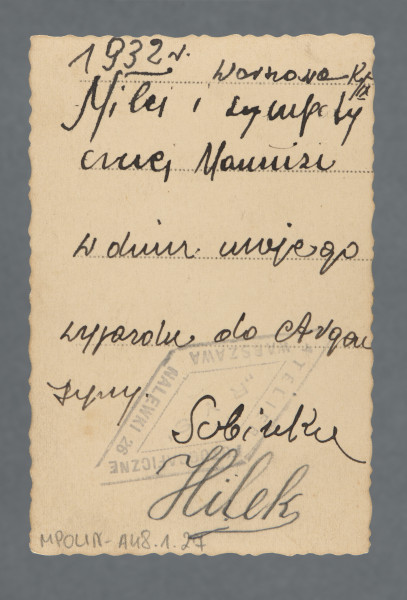 1932 r.
Warszawa
Miłej i sympaty
cznej Maniusi
w dniu mojego
wyjazdu do Argen
tyny.
Sobinka
Hilek
WARSZAWA
NALEWKI 26
MPOLIN-A48.1.27